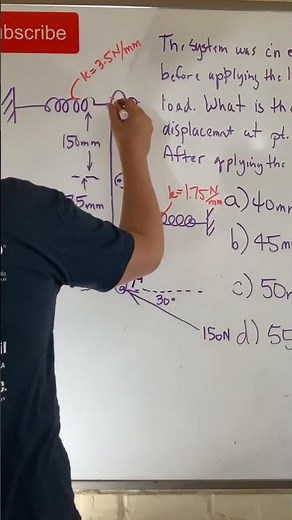 Subscribe
k=3.5N/mm
150mm
k=1.75N/mm
30°
150N
The system was in
before applying the
load. What is th
displacement at pt.
After applying the
a) 40m
b) 45m
c) 50
d) 55